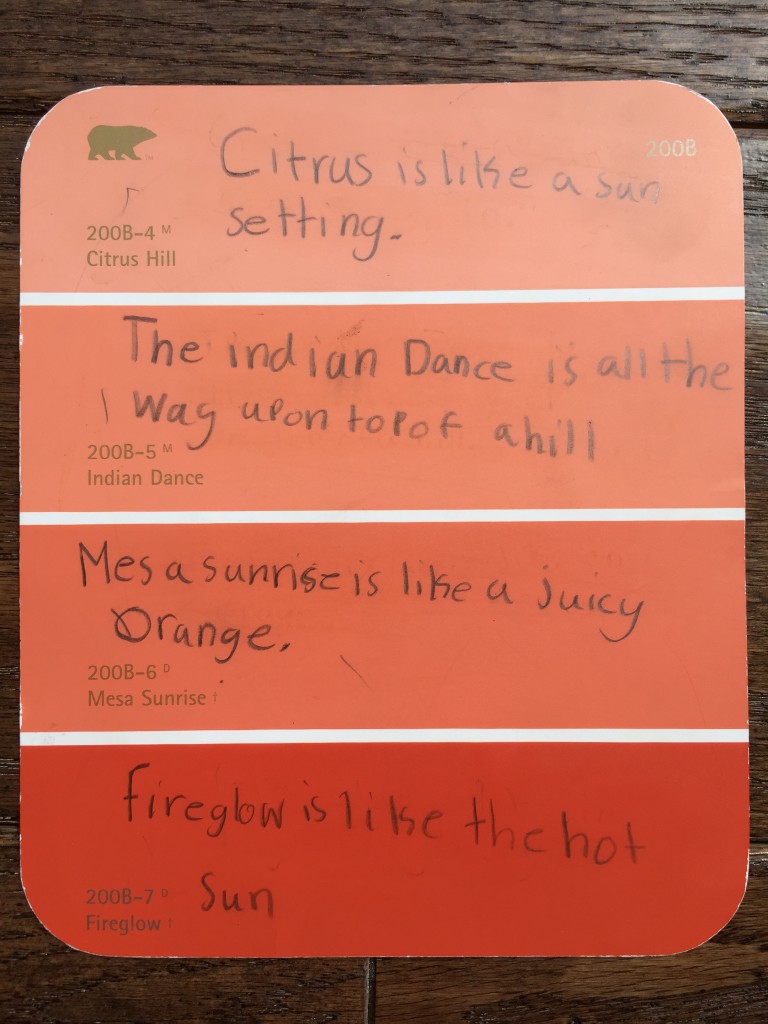 Citrus is like a sun 200B
setting.
200B-4 M
Citrus Hill
The indian Dance is all the
way upon top of a hill
200B-5 M
Indian Dance
Mesa sunrise is like a juicy
Orange.
200B-6 D
Mesa Sunrise †
fireglow is like the hot
Sun
200B-7 D
Fireglow †